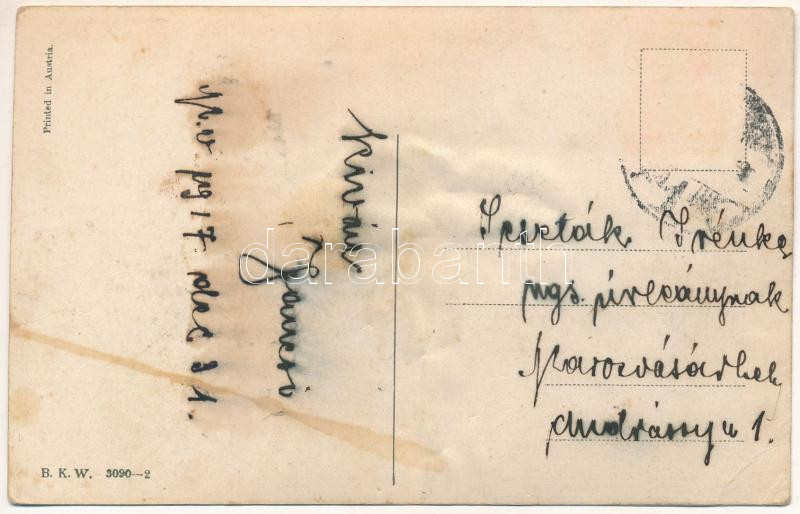 Printed in Austria.
M.v 1917 dec 31.
kiván
Jancsi
Irénke
ngs. úrleánynak
Marosvásárhely
Andrássy u 1.
B. K. W. 3090—2
darabanth